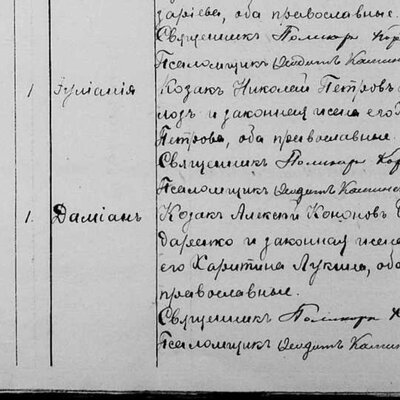 заріева, оба православные.
Священникъ Поликарп Кор
Псаломщикъ Феодотъ Кашин
1 Іуліанія Козакъ Николай Петровъ
лодъ и законная жена его
Петрова, оба православные.
Священникъ Поликарп Кор
Псаломщикъ Феодотъ Кашин
1. Даміанъ Козакъ Алексій Кононовъ
даренко и законная жена
его Харитина Лукина, оба
православные.
Священникъ Поликарп
Псаломщикъ Феодотъ Кашин